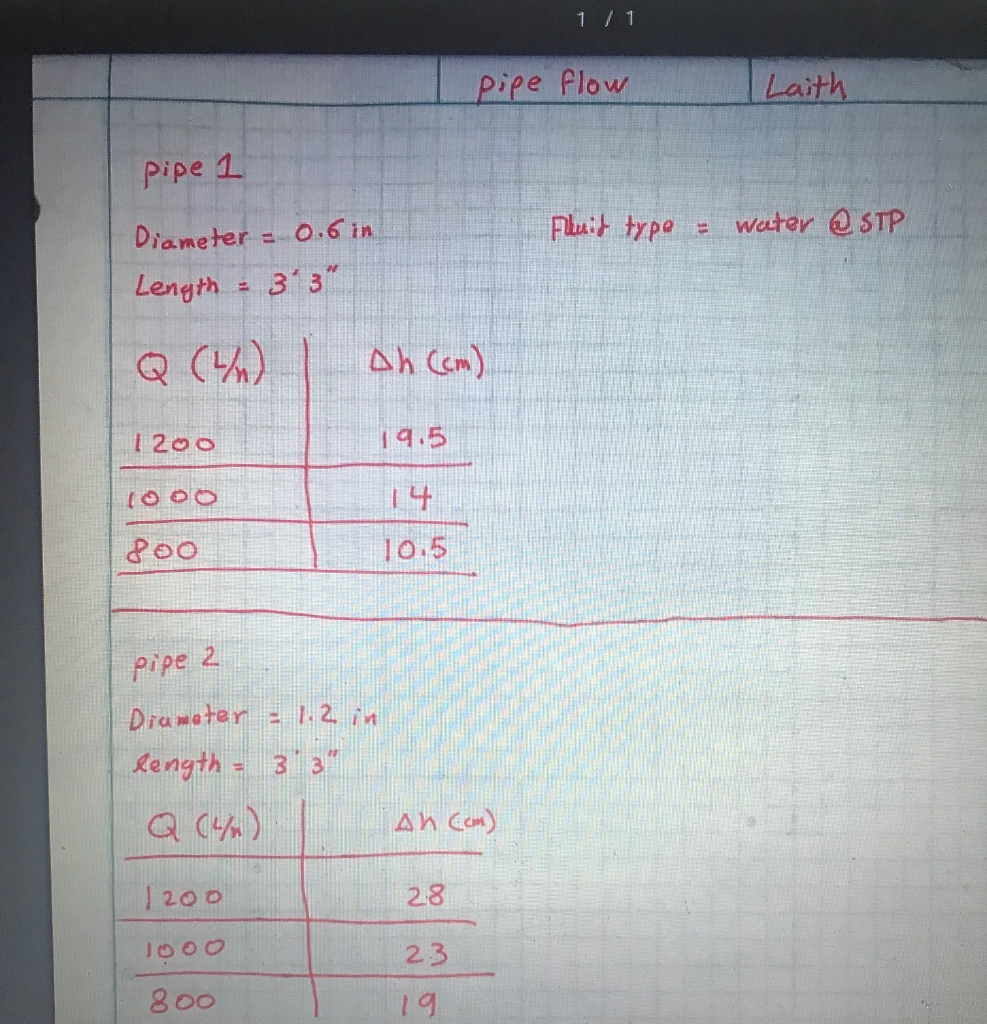 1 / 1
pipe flow Laith
pipe 1
Diameter = 0.6 in Fluit type = water @ STP
Length = 3' 3"
Q (L/h) Δh (cm)
1200 19.5
1000 14
800 10.5
pipe 2
Diameter = 1.2 in
length = 3' 3"
Q (L/h) Δh (cm)
1200 28
1000 23
800 19